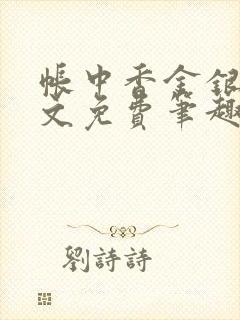 帳中香金銀
文免費筆趣
劉詩詩